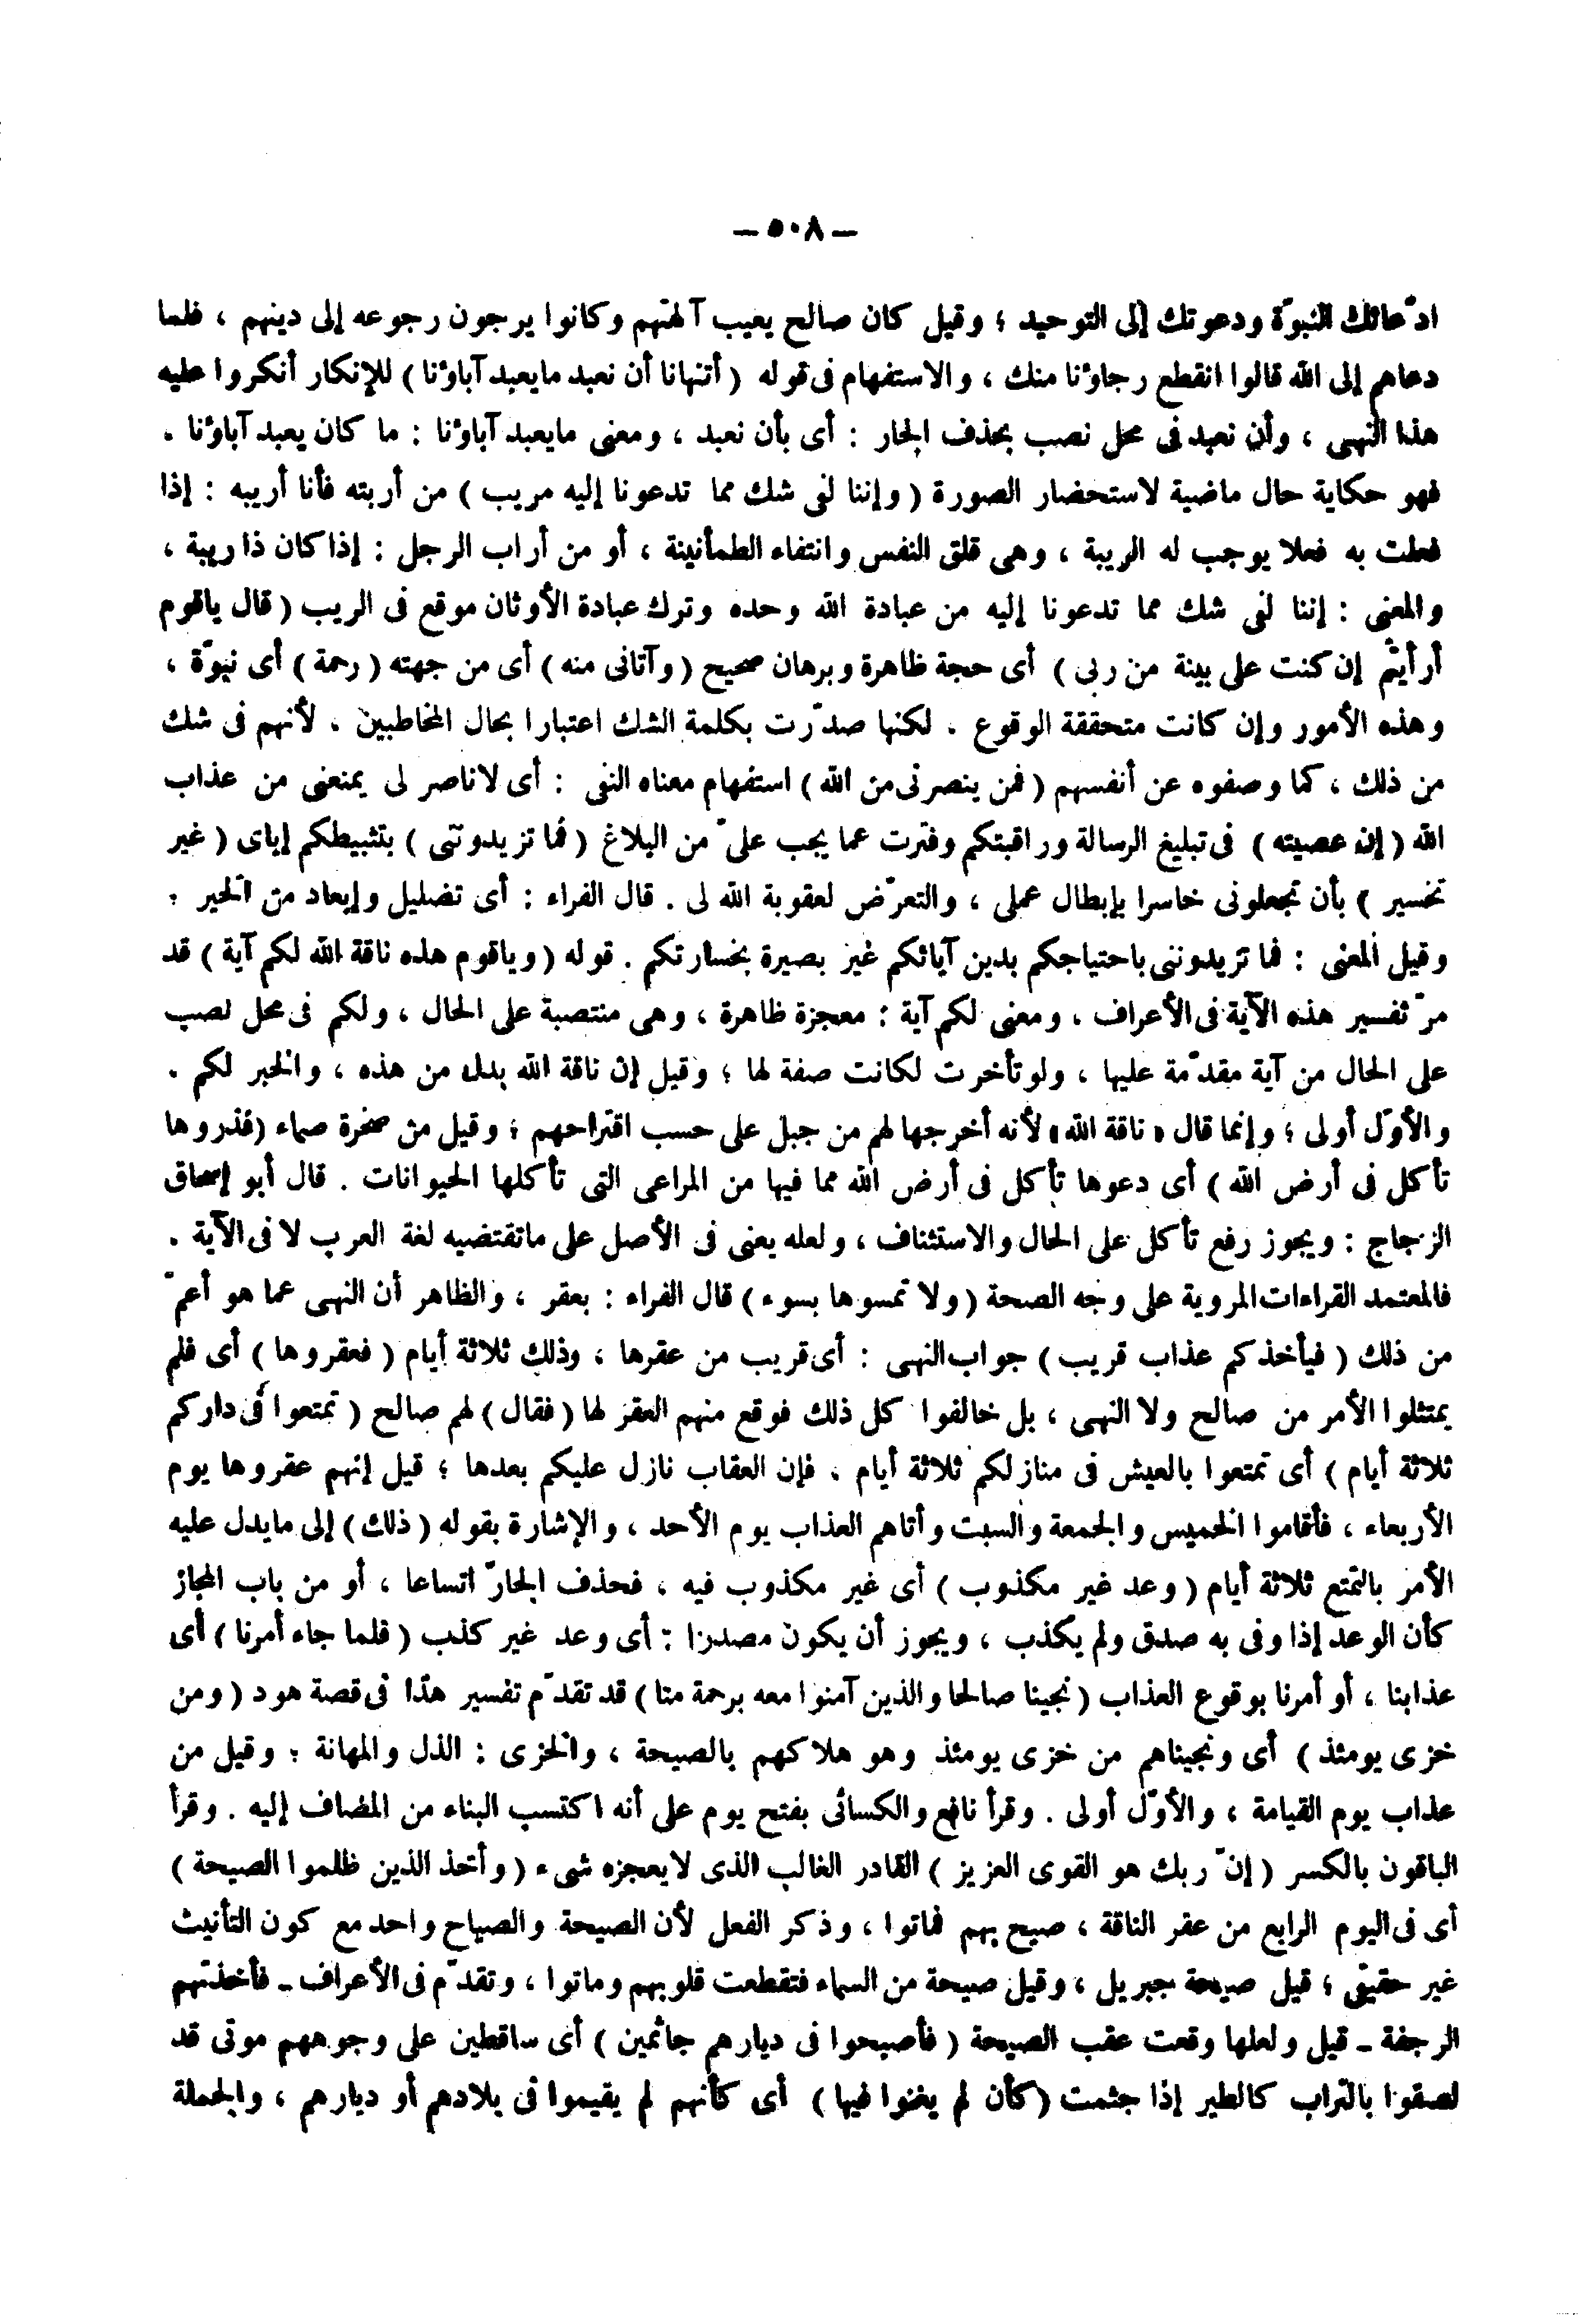 — ٥٠٨ —
ادّعائك النبوّة ودعوتك إلى التوحيد ؛ وقيل كان صالح يعيب آلهتهم وكانوا يرجون رجوعه إلى دينهم ، فلما
دعاهم إلى الله قالوا انقطع رجاؤنا منك ، والاستفهام فى قوله ( أتنهانا أن نعبد مايعبد آباؤنا ) للإنكار أنكروا عليه
هذا النهى ، وأن نعبد فى محل نصب بحذف الجار : أى بأن نعبد ، ومعنى مايعبد آباؤنا : ما كان يعبد آباؤنا .
فهو حكاية حال ماضية لاستحضار الصورة ( وإننا لفى شك مما تدعونا إليه مريب ) من أربته فأنا أريبه : إذا
فعلت به فعلا يوجب له الريبة ، وهى قلق النفس وانتفاء الطمأنينة ، أو من أراب الرجل : إذا كان ذا ريبة ،
والمعنى : إننا لفى شك مما تدعونا إليه من عبادة الله وحده وترك عبادة الأوثان موقع فى الريب ( قال ياقوم
أرأيتم إن كنت على بينة من ربى ) أى حجة ظاهرة وبرهان صحيح ( وآتانى منه ) أى من جهته ( رحمة ) أى نبوّة ،
وهذه الأمور وإن كانت متحققة الوقوع . لكنها صدّرت بكلمة الشك اعتبارا بحال المخاطبين ، لأنهم فى شك
من ذلك ، كما وصفوه عن أنفسهم ( فمن ينصرنى من الله ) استفهام معناه النفى : أى لاناصر لى يمنعنى من عذاب
الله ( إن عصيته ) فى تبليغ الرسالة وراقبتكم وفترت عما يجب علىّ من البلاغ ( فما تزيدوننى ) بتثبيطكم إياى ( غير
تخسير ) بأن تجعلونى خاسرا بإبطال عملى ، والتعرّض لعقوبة الله لى . قال الفراء : أى تضليل وإبعاد من الخير ؛
وقيل المعنى : فما تزيدوننى باحتياجكم بدين آبائكم غير بصيرة بخسارتكم . قوله ( وياقوم هذه ناقة الله لكم آية ) قد
مرّ تفسير هذه الآية فى الأعراف ، ومعنى لكم آية : معجزة ظاهرة ، وهى منتصبة على الحال ، ولكم فى محل نصب
على الحال من آية مقدّمة عليها ، ولو تأخرت لكانت صفة لها ؛ وقيل إن ناقة الله بدل من هذه ، والخبر لكم .
والأوّل أولى ؛ وإنما قال « ناقة الله » لأنه أخرجها لهم من جبل على حسب اقتراحهم ؛ وقيل من صخرة صماء ( فذروها
تأكل فى أرض الله ) أى دعوها تأكل فى أرض الله مما فيها من المراعى التى تأكلها الحيوانات . قال أبو إسحاق
الزجاج : ويجوز رفع تأكل على الحال والاستئناف ، ولعله يعنى فى الأصل على ماتقتضيه لغة العرب لا فى الآية .
فالمعتمد القراءات المروية على وجه الصحة ( ولا تمسوها بسوء ) قال الفراء : بعقر ، والظاهر أن النهى عما هو أعمّ
من ذلك ( فيأخذكم عذاب قريب ) جواب النهى : أى قريب من عقرها ، وذلك ثلاثة أيام ( فعقروها ) أى فلم
يمتثلوا الأمر من صالح ولا النهى ، بل خالفوا كل ذلك فوقع منهم العقر لها ( فقال ) لهم صالح ( تمتعوا فى داركم
ثلاثة أيام ) أى تمتعوا بالعيش فى منازلكم ثلاثة أيام ، فإن العقاب نازل عليكم بعدها ؛ قيل إنهم عقروها يوم
الأربعاء ، فأقاموا الخميس والجمعة والسبت وأتاهم العذاب يوم الأحد ، والإشارة بقوله ( ذلك ) إلى مايدل عليه
الأمر بالتمتع ثلاثة أيام ( وعد غير مكذوب ) أى غير مكذوب فيه ، فحذف الجارّ اتساعا ، أو من باب المجاز
كأن الوعد إذا وفى به صدق ولم يكذب ، ويجوز أن يكون مصدرا : أى وعد غير كذب ( فلما جاء أمرنا ) أى
عذابنا ، أو أمرنا بوقوع العذاب ( نجينا صالحا والذين آمنوا معه برحمة منا ) قد تقدّم تفسير هذا فى قصة هود ( ومن
خزى يومئذ ) أى ونجيناهم من خزى يومئذ وهو هلاكهم بالصيحة ، والخزى : الذل والمهانة ؛ وقيل من
عذاب يوم القيامة ، والأوّل أولى . وقرأ نافع والكسائى بفتح يوم على أنه اكتسب البناء من المضاف إليه . وقرأ
الباقون بالكسر ( إنّ ربك هو القوى العزيز ) القادر الغالب الذى لايعجزه شىء ( وأخذ الذين ظلموا الصيحة )
أى فى اليوم الرابع من عقر الناقة ، صيح بهم فماتوا ، وذكر الفعل لأن الصيحة والصياح واحد مع كون التأنيث
غير حقيقى ؛ قيل صيحة جبريل ، وقيل صيحة من السماء فتقطعت قلوبهم وماتوا ، وتقدّم فى الأعراف ـ فأخذتهم
الرجفة ـ قيل ولعلها وقعت عقب الصيحة ( فأصبحوا فى ديارهم جاثمين ) أى ساقطين على وجوههم موتى قد
لصقوا بالتراب كالطير إذا جثمت ( كأن لم يغنوا فيها ) أى كأنهم لم يقيموا فى بلادهم أو ديارهم ، والجملة